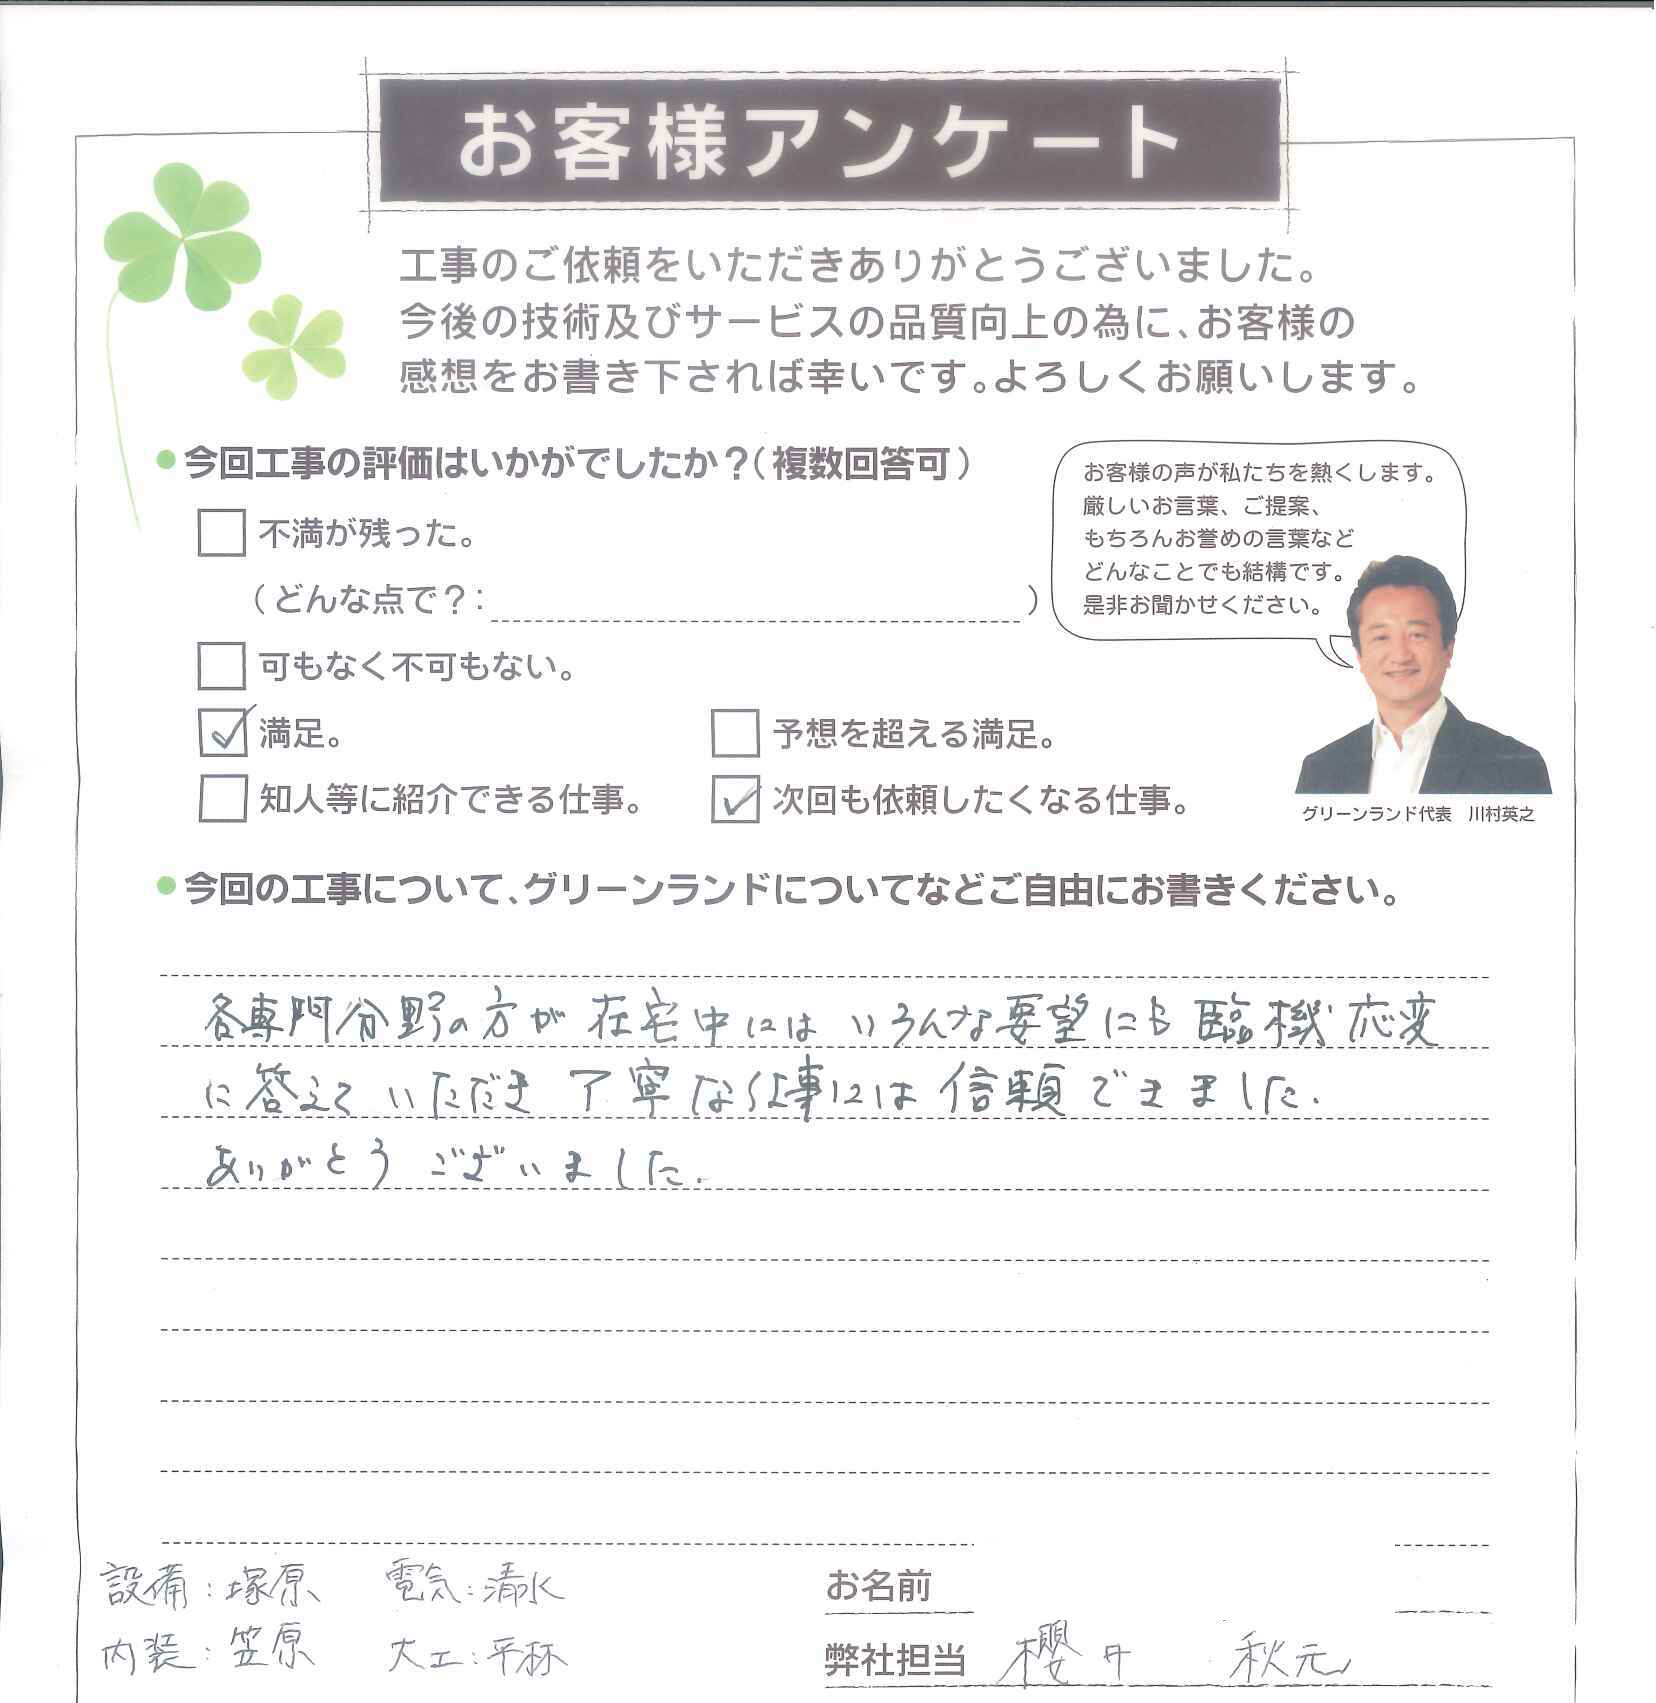 お客様アンケート
工事のご依頼をいただきありがとうございました。
今後の技術及びサービスの品質向上の為に、お客様の
感想をお書き下されば幸いです。よろしくお願いします。
●今回工事の評価はいかがでしたか？（複数回答可）
不満が残った。
（どんな点で？：　）
可もなく不可もない。
満足。
予想を超える満足。
知人等に紹介できる仕事。
次回も依頼したくなる仕事。
お客様の声が私たちを熱くします。
厳しいお言葉、ご提案、
もちろんお誉めの言葉など
どんなことでも結構です。
是非お聞かせください。
グリーンランド代表　川村英之
●今回の工事について、グリーンランドについてなどご自由にお書きください。
各専門分野の方が在宅中にはいろんな要望にも臨機応変
に答えていただき丁寧な仕事には信頼できました.
ありがとうございました.
設備：塚原　電気：清水
内装：笠原　大工：平林
お名前
弊社担当　櫻井　秋元